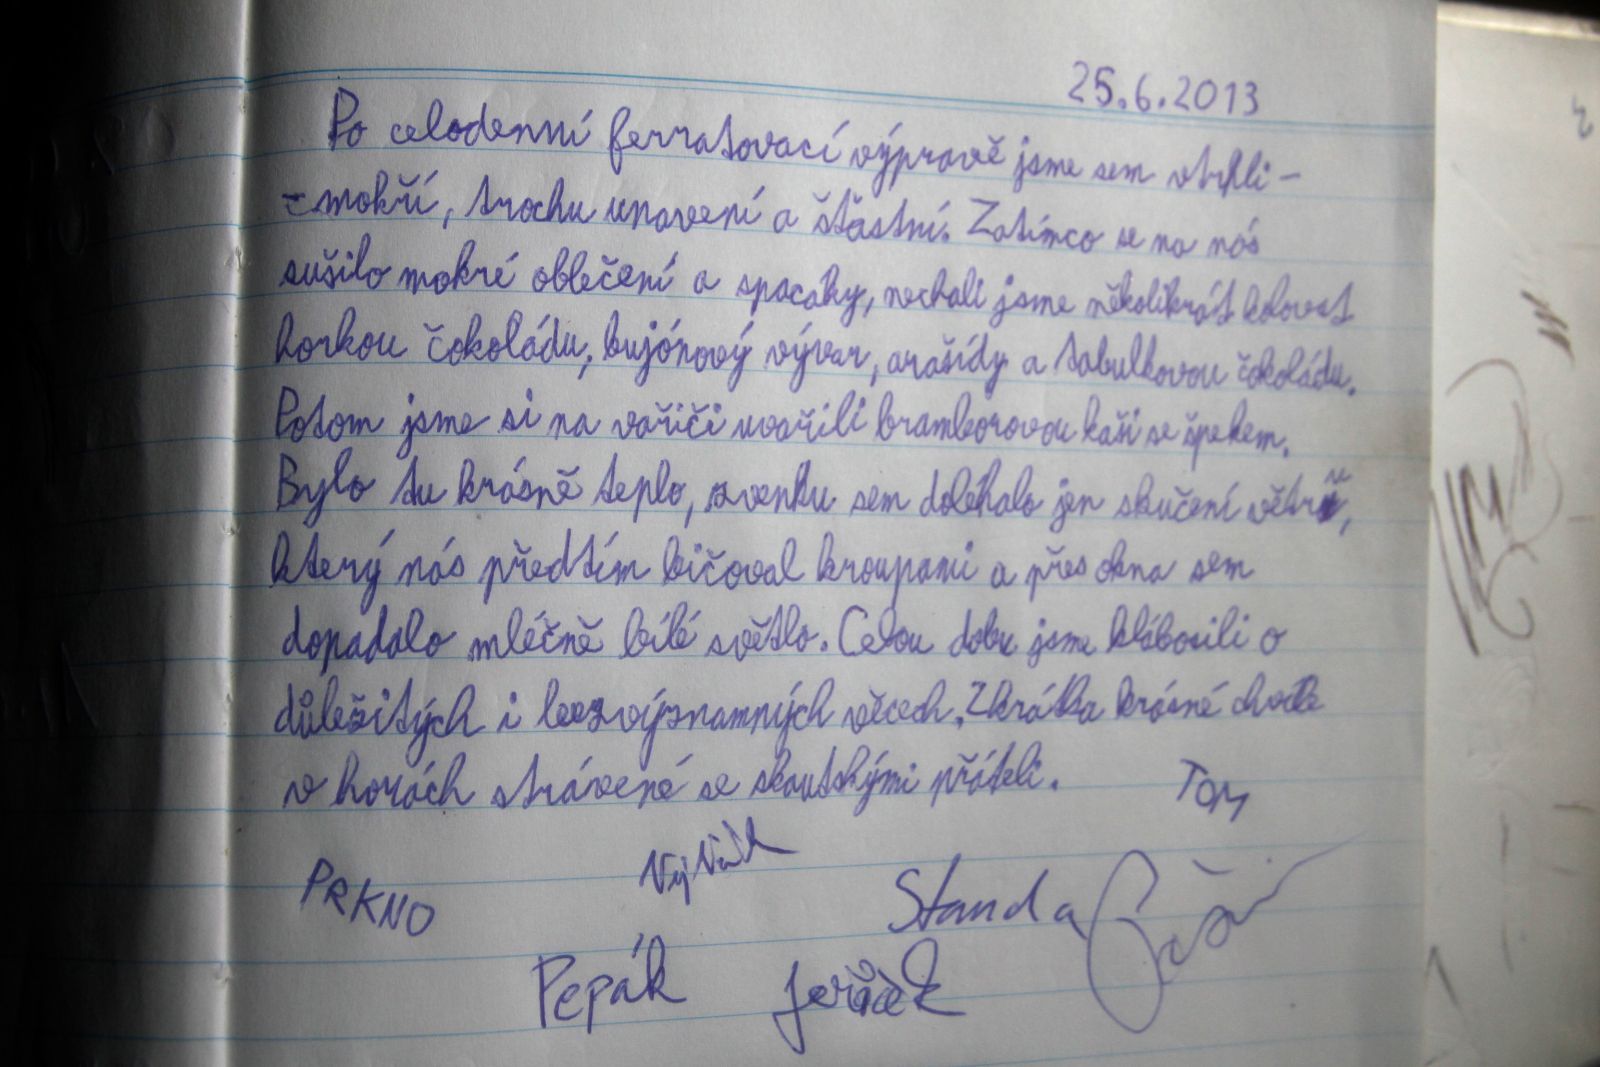 25.6.2013
Po celodenní ferratovací výpravě jsme sem vtrhli –
– mokří, trochu unavení a šťastní. Zatímco se na nás
sušilo mokré oblečení a spacáky, nechali jsme několikrát kolovat
horkou čokoládu, bujónový vývar, arašídy a tabulkovou čokoládu.
Potom jsme si na vařiči uvařili bramborovou kaši se špekem.
Bylo tu krásně teplo, zvenku sem doléhalo jen skučení větru,
který nás předtím bičoval kroupami a přes okna sem
dopadalo mléčně bílé světlo. Celou dobu jsme klábosili o
důležitých i bezvýznamných věcech. Zkrátka krásné chvíle
v horách strávené se skautskými přáteli.
TOM
PRKNO
Standa
Pepák